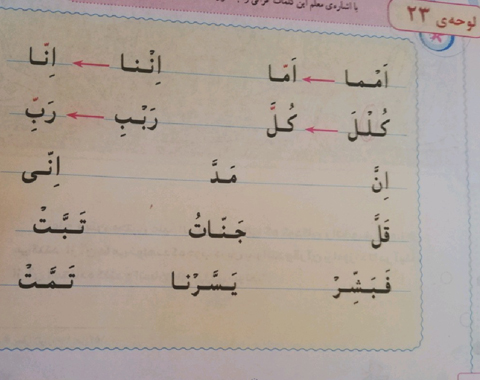 با اشاره‌ی معلم این کلمات قرآنی را
لوحه‌ی ۲۳
اَمْما ← اَمّا اِنْنا ← اِنّا
كُلْلَ ← كُلَّ رَبْبِ ← رَبِّ
اِنَّ مَدَّ اِنّی
قَلَّ جَنّاتُ تَبَّتْ
فَبَشِّرْ يَسَّرْنا تَمَّتْ